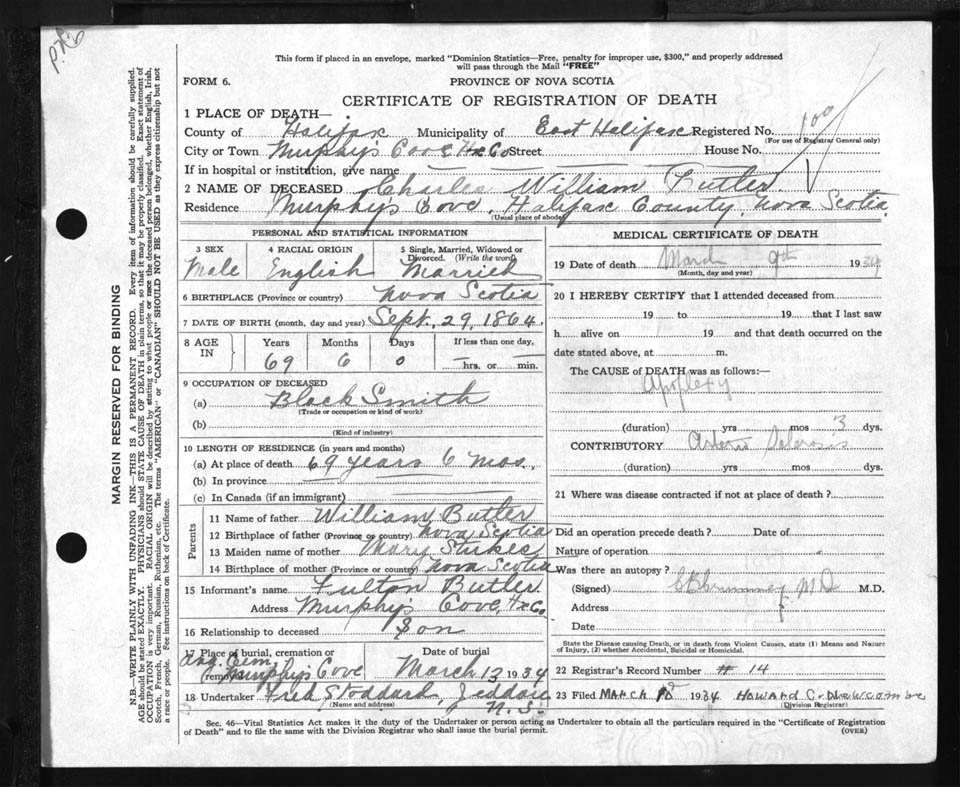 This form if placed in an envelope, marked "Dominion Statistics—Free, penalty for improper use, $300," and properly addressed
will pass through the Mail "FREE"
FORM 6. PROVINCE OF NOVA SCOTIA
CERTIFICATE OF REGISTRATION OF DEATH
1 PLACE OF DEATH—
County of Halifax Municipality of East Halifax Registered No.
(For use of Registrar General only)
City or Town Murphy's Cove Hx Co Street House No.
If in hospital or institution, give name
2 NAME OF DECEASED Charles William Butler
Residence Murphy's Cove, Halifax County, Nova Scotia
(Usual place of abode)
PERSONAL AND STATISTICAL INFORMATION
3 SEX 4 RACIAL ORIGIN 5 Single, Married, Widowed or Divorced. (Write the word)
Male English Married
6 BIRTHPLACE (Province or country) Nova Scotia
7 DATE OF BIRTH (month, day and year) Sept. 29, 1864.
8 AGE IN Years Months Days If less than one day,
69 6 0 hrs. or min.
9 OCCUPATION OF DECEASED
(a) Black Smith
(Trade or occupation or kind of work)
(b)
(Kind of industry)
10 LENGTH OF RESIDENCE (in years and months)
(a) At place of death 69 years 6 mos.
(b) In province
(c) In Canada (if an immigrant)
Parents
11 Name of father William Butler
12 Birthplace of father (Province or country) Nova Scotia
13 Maiden name of mother Mary
14 Birthplace of mother (Province or country) Nova Scotia
15 Informant's name Fulton Butler
Address Murphys Cove, Hx Co
16 Relationship to deceased Son
17 Place of burial, cremation or Date of burial
Ang. Cem. Murphy's Cove March 13 1934
18 Undertaker Fred Stoddard, Jeddore N.S.
(Name and address)
MEDICAL CERTIFICATE OF DEATH
19 Date of death March 9th 1934
(Month, day and year)
20 I HEREBY CERTIFY that I attended deceased from
19 to 19 that I last saw
h alive on 19 and that death occurred on the
date stated above, at m.
The CAUSE of DEATH was as follows:—
Apoplexy
(duration) yrs mos 3 dys.
CONTRIBUTORY Arterio Sclerosis
(duration) yrs mos dys.
21 Where was disease contracted if not at place of death?
Did an operation precede death? Date of
Nature of operation
Was there an autopsy?
(Signed) M.D. M.D.
Address
Date
State the Disease causing Death, or in death from Violent Causes, state (1) Means and Nature
of Injury, (2) whether Accidental, Suicidal or Homicidal.
22 Registrar's Record Number # 14
23 Filed MARCH 1934 Howard C. Newcombe
(Division Registrar)
Sec. 46—Vital Statistics Act makes it the duty of the Undertaker or person acting as Undertaker to obtain all the particulars required in the "Certificate of Registration
of Death" and to file the same with the Division Registrar who shall issue the burial permit. (OVER)
MARGIN RESERVED FOR BINDING
N.B.—WRITE PLAINLY WITH UNFADING INK—THIS IS A PERMANENT RECORD. Every item of information should be carefully supplied.
AGE should be stated EXACTLY. PHYSICIANS should STATE CAUSE OF DEATH in plain terms, so that it may be properly classified. Exact statement of
OCCUPATION is very important. RACIAL ORIGIN will be described by stating to what people or race the deceased person belonged, whether English, Irish,
Scotch, French, German, Russian, Ruthenian, etc. The terms "AMERICAN" or "CANADIAN" SHOULD NOT BE USED as they express citizenship but not
a race or people. See instructions on back of Certificate.